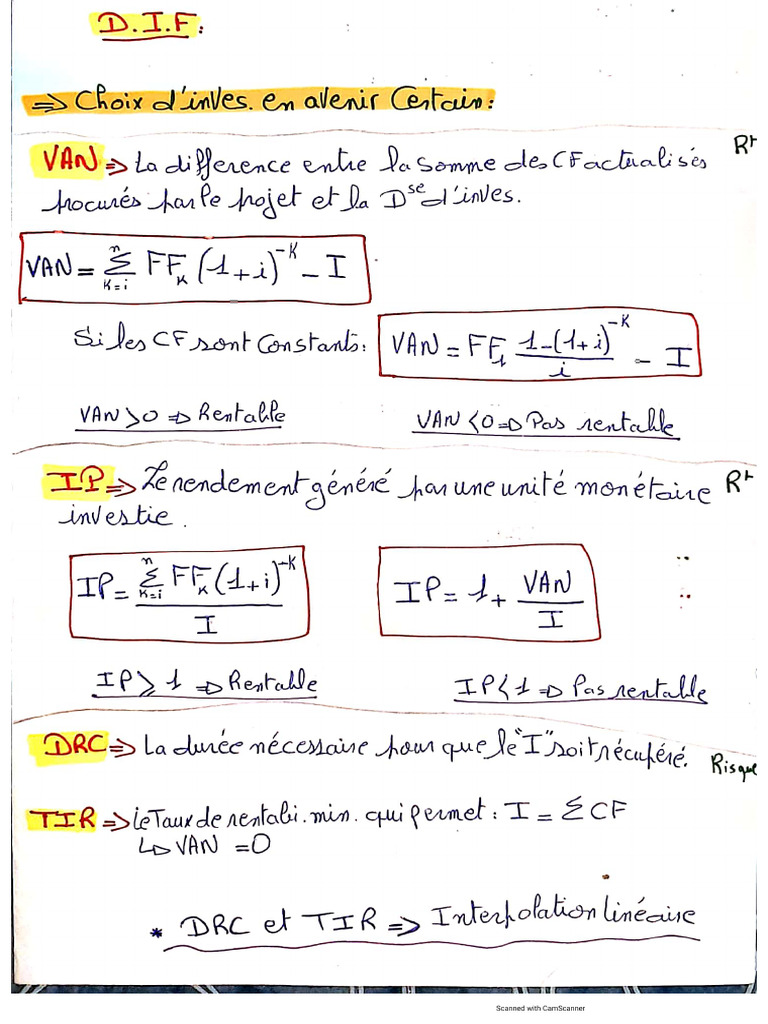 D.I.F:
⇒ Choix d'inves. en avenir Certain:
VAN ⇒ La difference entre la somme des CF actualisés Rt
procurés par le projet et la Dse d'inves.
VAN = Σ_{K=i}^{n} FF_K (1+i)^{-K} - I
Si les CF sont Constants: VAN = FF_1 \frac{1-(1+i)^{-K}}{i} - I
VAN > 0 ⇒ Rentable VAN < 0 ⇒ Pas rentable
IP ⇒ Le rendement généré par une unité monétaire Rt
investie.
IP = \frac{Σ_{K=i}^{n} FF_K (1+i)^{-K}}{I} IP = 1 + \frac{VAN}{I}
IP ≥ 1 ⇒ Rentable IP < 1 ⇒ Pas rentable
DRC ⇒ La durée nécessaire pour que le "I" soit récupéré. Risque
TIR ⇒ le Taux de rentabi. min. qui permet : I = Σ CF
↳ VAN = 0
* DRC et TIR ⇒ Interpolation linéaire
Scanned with CamScanner